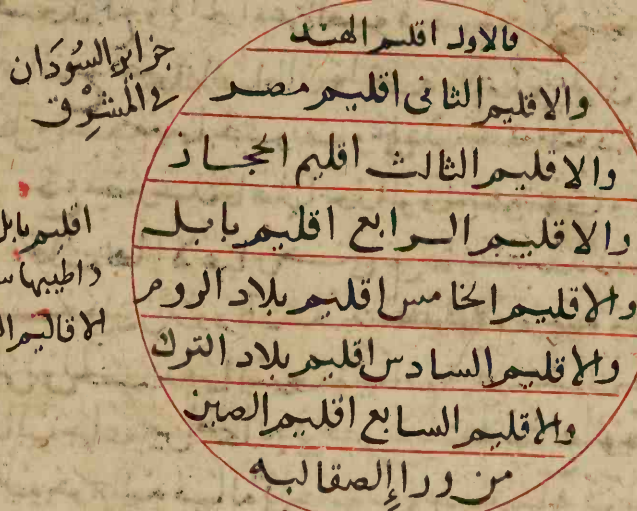 فالاول اقليم الهند
والاقليم الثانى اقليم مصر
والاقليم الثالث اقليم الحجاز
والاقليم الرابع اقليم بابل
والاقليم الخامس اقليم بلاد الروم
والاقليم السادس اقليم بلاد الترك
والاقليم السابع اقليم الصين
من وراإ الصقالبه
جزاير السُودَان
فى المشرِق
اقليم بابل
واطيبها
الاقاليم